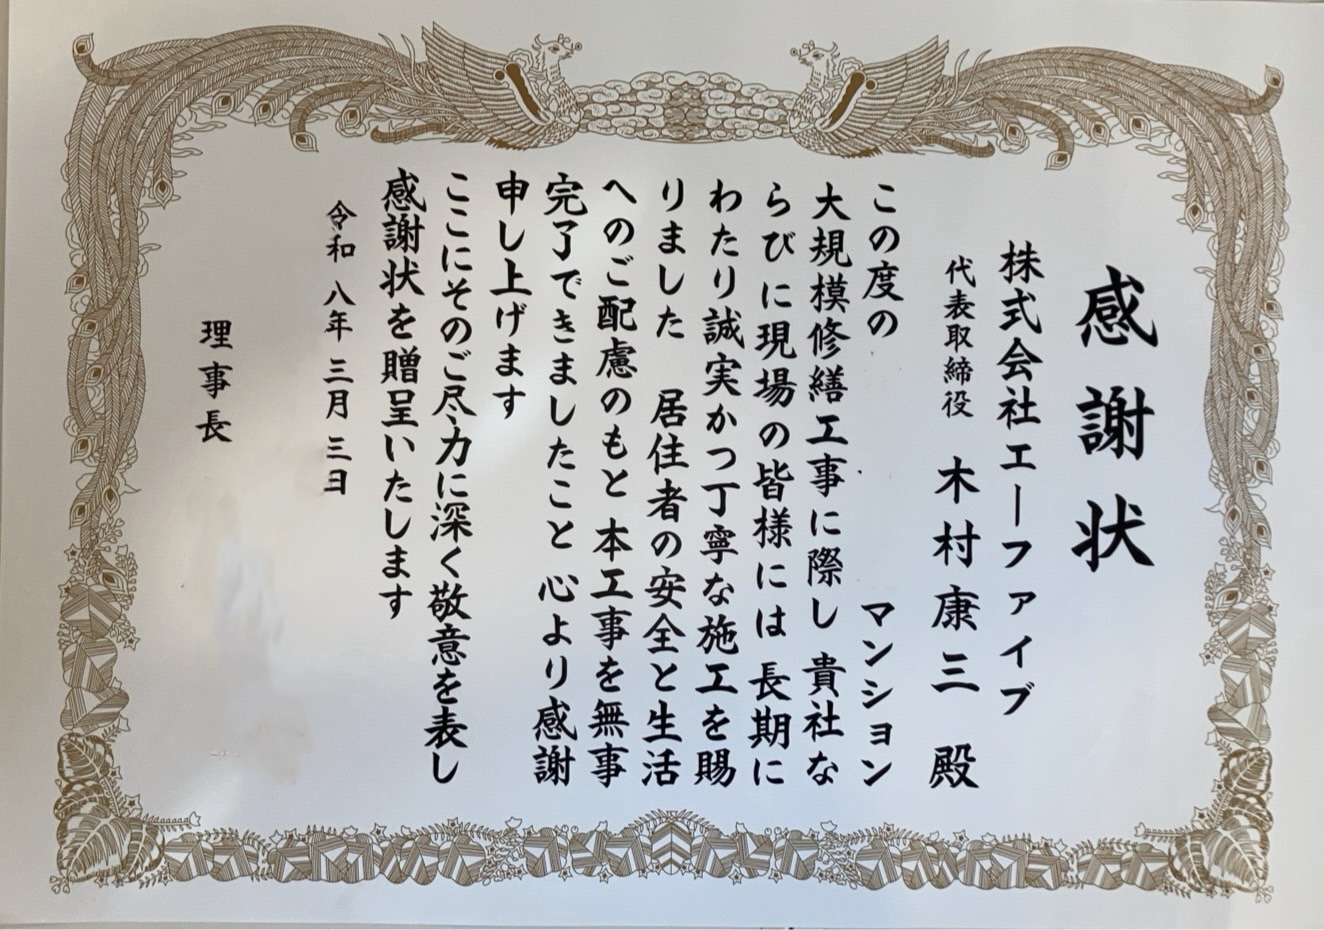 感謝状
株式会社エーファイブ
代表取締役 木村康三 殿
この度の マンション
大規模修繕工事に際し 貴社な
らびに現場の皆様には 長期に
わたり誠実かつ丁寧な施工を賜
りました 居住者の安全と生活
へのご配慮のもと 本工事を無事
完了できましたこと 心より感謝
申し上げます
ここにそのご尽力に深く敬意を表し
感謝状を贈呈いたします
令和 八年 三月 三日
理事長